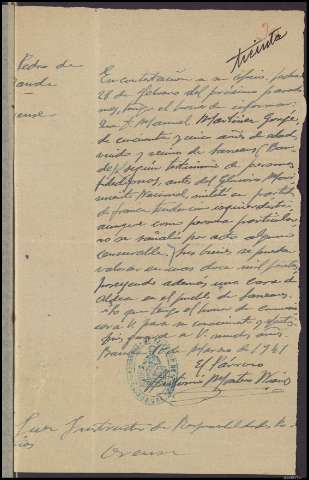 treinta
Pedro de
Bande
Orense
En contestación a su oficio, fecha
28 de febrero del próximo pasado
mes, tengo el honor de informar:
Que D. Manuel Martinez
de cincuenta y cinco años de edad
y vecino de
de, según testimonio de personas
fidedignas, antes del Glorioso Movi-
miento Nacional, militó en partido
de franca tendencia izquierdista
aunque como persona particular
no se señaló por acto alguno
censurable. Sus bienes se pueden
valorar en unas doce mil pesetas
poseyendo además una casa de
aldea en el pueblo de
Lo que tengo el honor de comuni-
car a V. para su conocimiento y efectos
Dios guarde a V. muchos años
Bande de Marzo de 1941
El Párroco
Juez Instructor de Responsabilidades
Orense